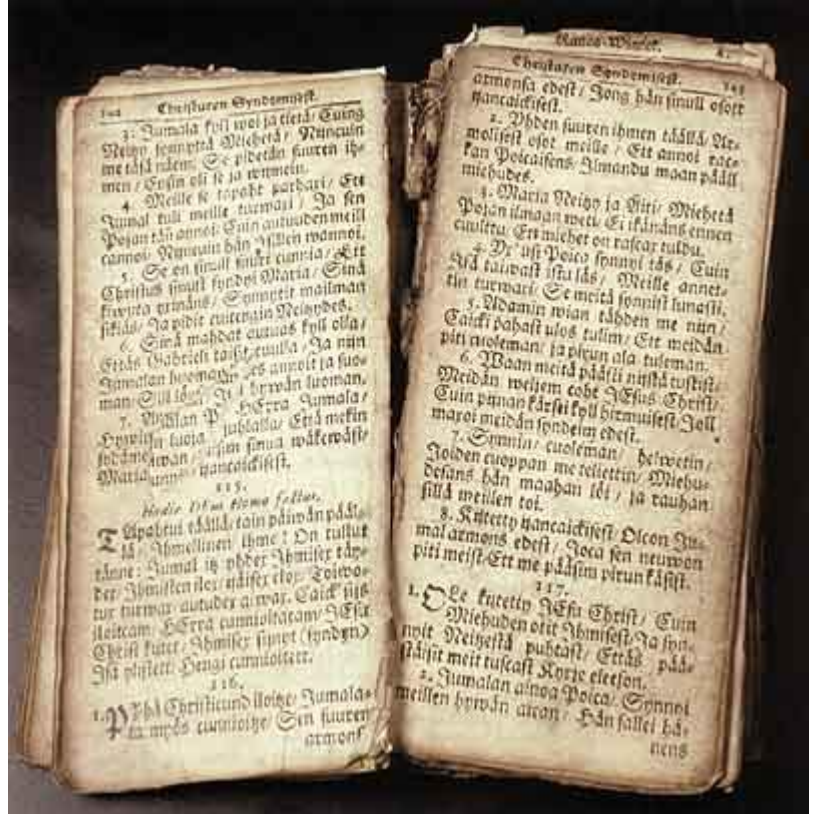 144 Christuxen Syndymisest.
3. Jumala kyll woi ja tietä/ Cuing
Neitzy synnyttä Miehetä/ Nijncuin
me täsä näem: Se pidetän suuren ih-
men/ Ensin oli se ja wijmein.
4. Meille se tapaht parhari/ Ett
Jumal tuli meille turwari/ Ja sen
Pojan tän annoi/ Cuin autuuden meill
cannoi/ Nijncuin hän Isillen wannoi.
5. Se on sinull suuri cunnia/ Ett
Christus sinust syndyi Maria/ Sinä
ilman / Synnytit mailman
/ Ja pidit cuitengin Neitzydes.
6. Sinä mahdat autuas kyll olla/
Ettäs Gabrielt taisit cuulla/ Ja nijn
Jumalan annoit ja suo-
man/ Sill hywän luoman.
7. HErra Jumala/
Hywisin suoja juhlalla/ Että mekin
sydäme sinua wäkewäst/
Maria ijancaickisest.
115.
Hodie Deus homo factus.
TApahtui täällä/ tain päiwän pääl-
lä/ Ihmellinen ihme! On tullut
tänne: Jumal itz yhdex Ihmisex täy-
dex/ Ihmisten ilox/ näisex elox/ Toiwo-
tux turwax/ autudex arwax. Caick sijs
iloitcam/ HErra cunnioitacam/ JEsu
Christ kijtet/ Ihmisex sijnyt (syndyn)
Isä ylistett: Hengi cunnioitett.
116.
1. PYhä Christicund iloitze/ Jumala-
ta myös cunnioitze/ Sen suuren
armons
Ranca-Wirdet.
Christuxen Syndymisest. 145
armonsa edest/ Jong hän sinull osott
ijancaickisest.
2. Yhden suuren ihmen täällä/ Ar-
molisest osot meille/ Ett annoi rac-
kan Poicaisens/ Ilmandu maan pääll
miehudes.
3. Maria Neitzy ja Äiti/ Miehetä
Pojan ilmaan weti/ Ei ikänäns ennen
cuultu/ Ett miehet on rascax tuldu.
4. Yx' usi Poica synnyi täs/ Cuin
Isä taiwast istu läs/ Meille annet-
tin turwari/ Se meitä synnist lunasti.
5. Adamin wian tähden me nijn/
Caicki pahast ulos tulim/ Ett meidän
piti cuoleman/ ja pirun ala tuleman.
6. Waan meitä päästi nijstä tuskist/
Meidän weljem coht JEsus Christ/
Cuin pijnan kärsei kyll hirmuisest/ Joll
maxoi meidän syndeim edest.
7. Synnin/ cuoleman/ helwetin/
Joiden cuoppan me teliettin/ Miehu-
desans hän maahan löi/ ja rauhan
sillä meillen toi.
8. Kijtetty ijancaickisest/ Olcon Ju-
mal armons edest/ Joca sen neuwon
piti meist/ Ett me pääsim pirun käsist.
117.
1. OLe kijtetty JEsu Christ/ Cuin
Miehuden otit Ihmisest/ Ja syn-
nyit Neitzestä puhtast/ Ettäs pää-
stäisit meit tuscast Kyrje eleeson.
2. Jumalan ainoa Poica/ Synnyi
meillen hywän aican/ Hän sallei hä-
nens